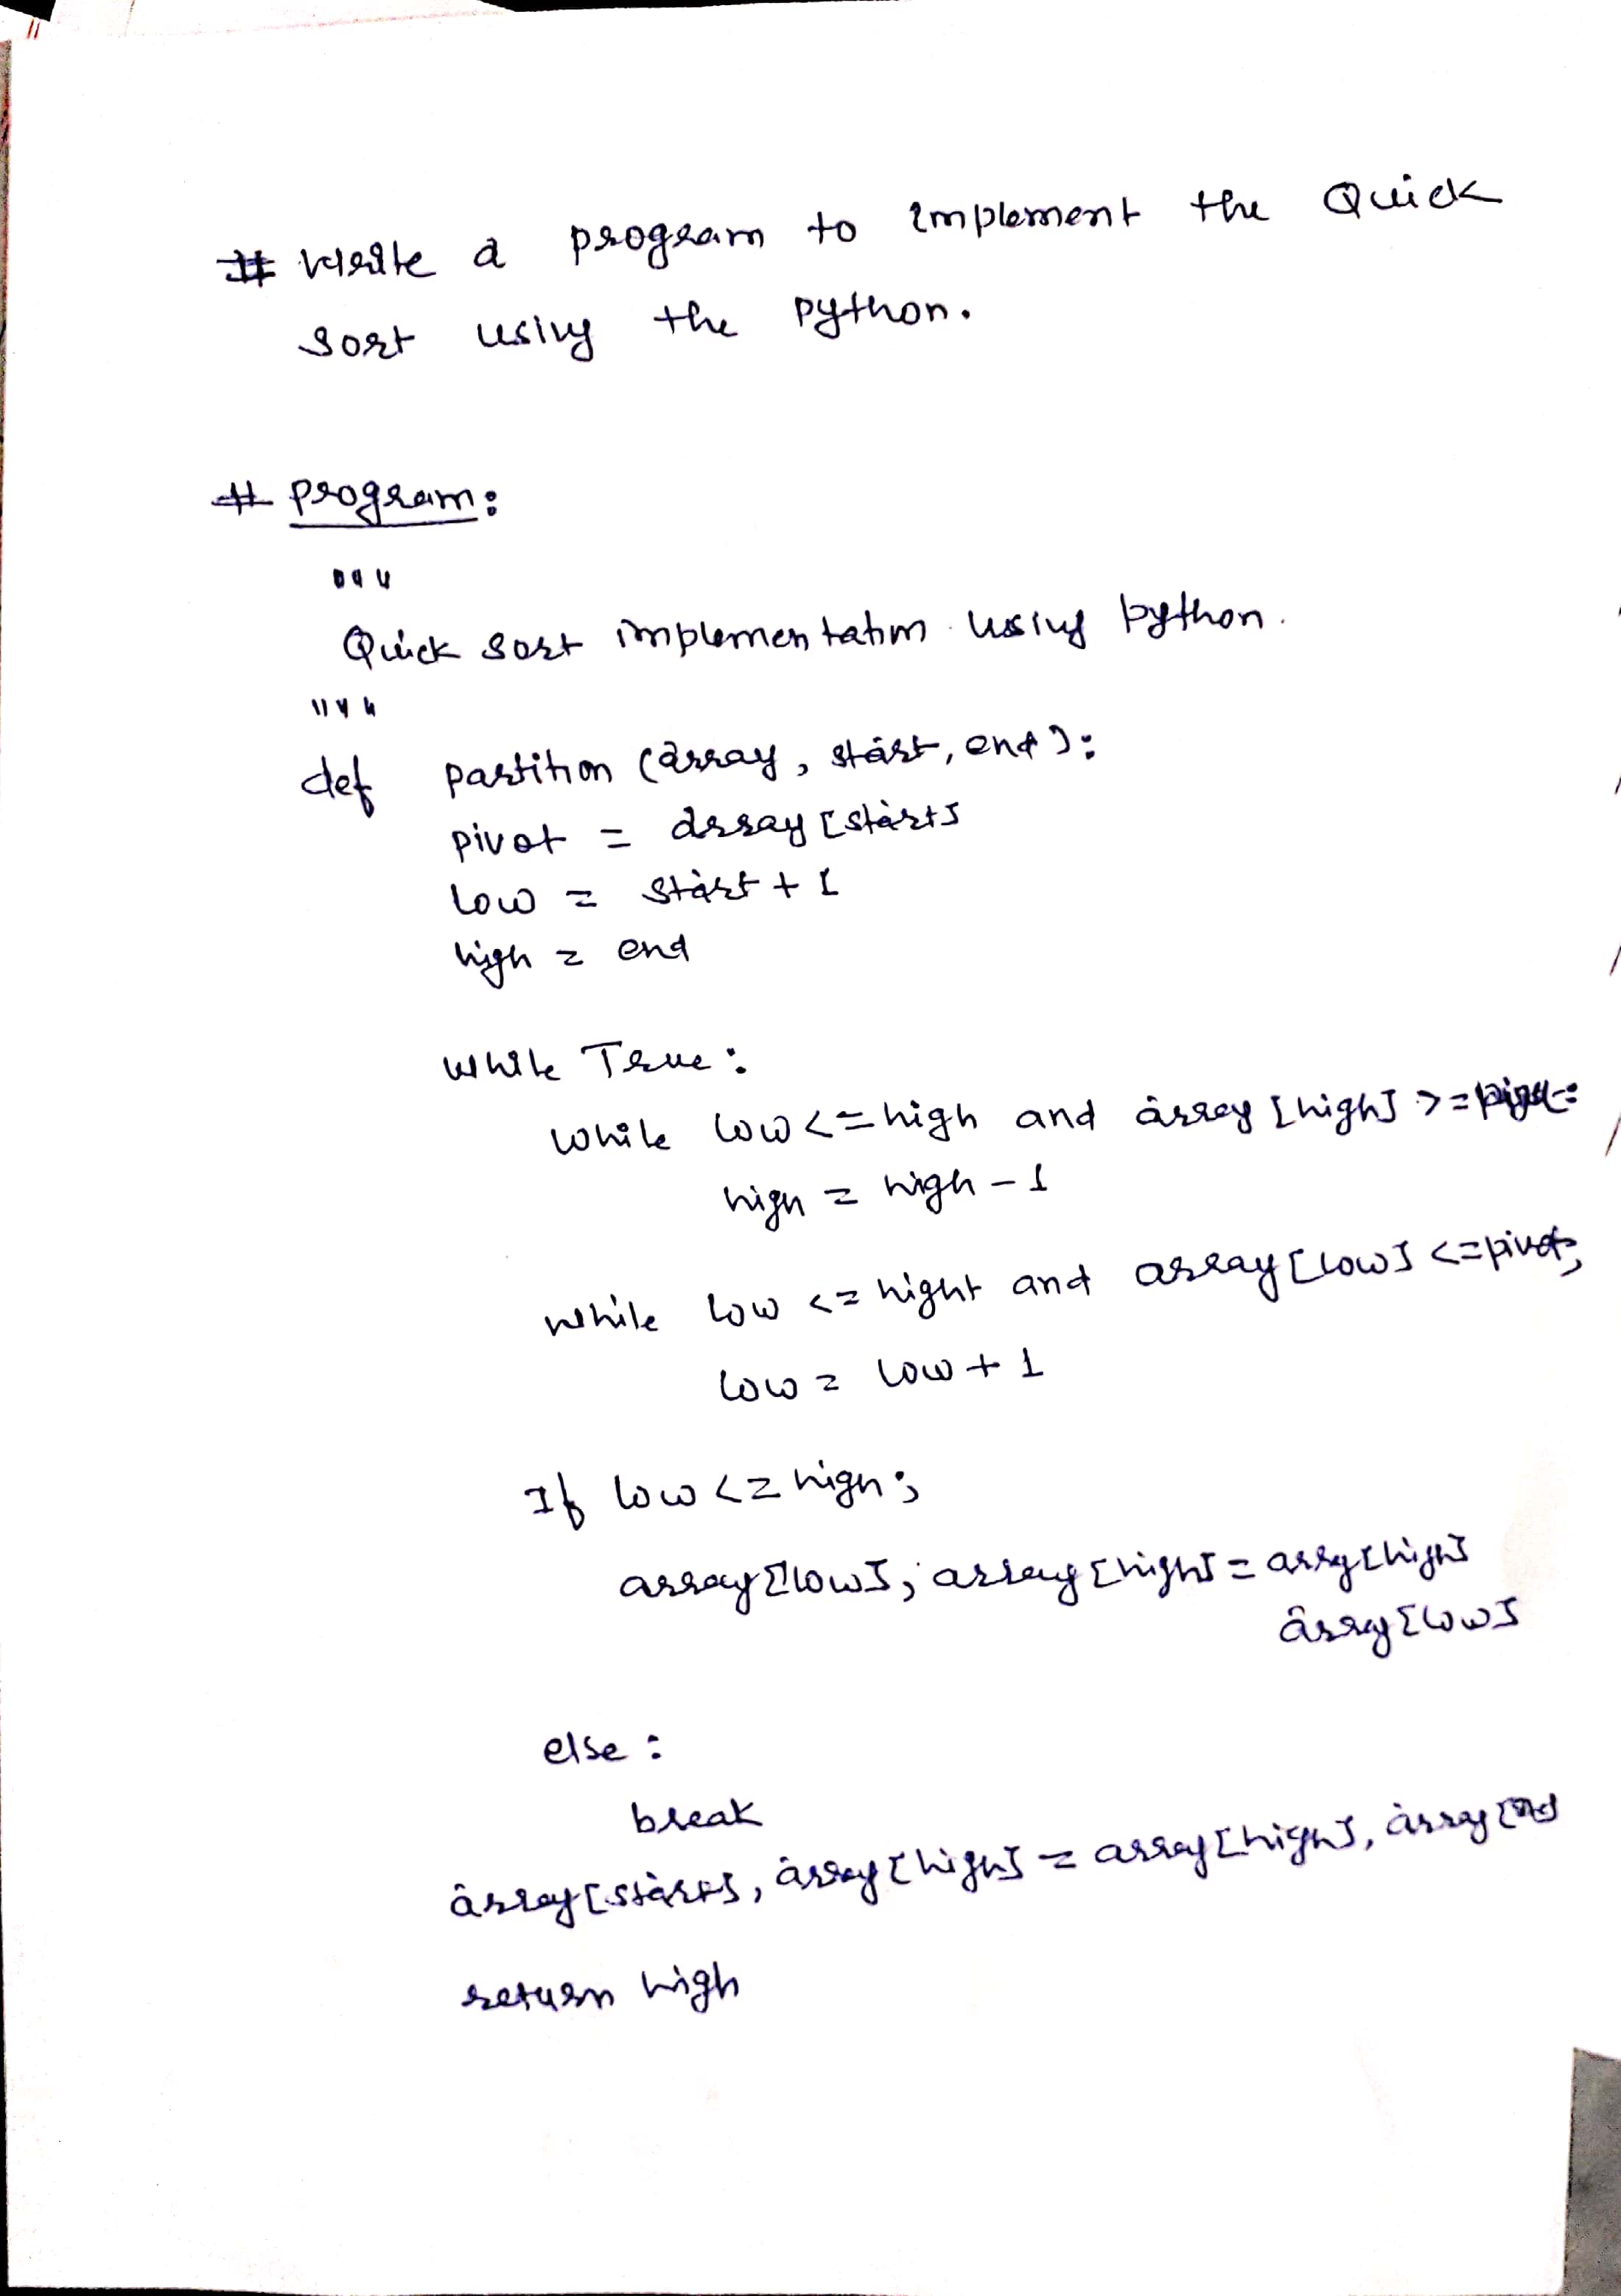 # Write a program to implement the Quick
Sort using the python.
# Program:
"""
Quick sort implementation using python.
"""
def partition (array, start, end):
pivot = array [start]
low = start + 1
high = end
while True:
while low <= high and array [high] >= pivot:
high = high - 1
while low <= hight and array [low] <= pivot:
low = low + 1
If low <= high:
array [low], array [high] = arry [high]
array [low]
else :
break
array [start], array [high] = array [high], array
return high